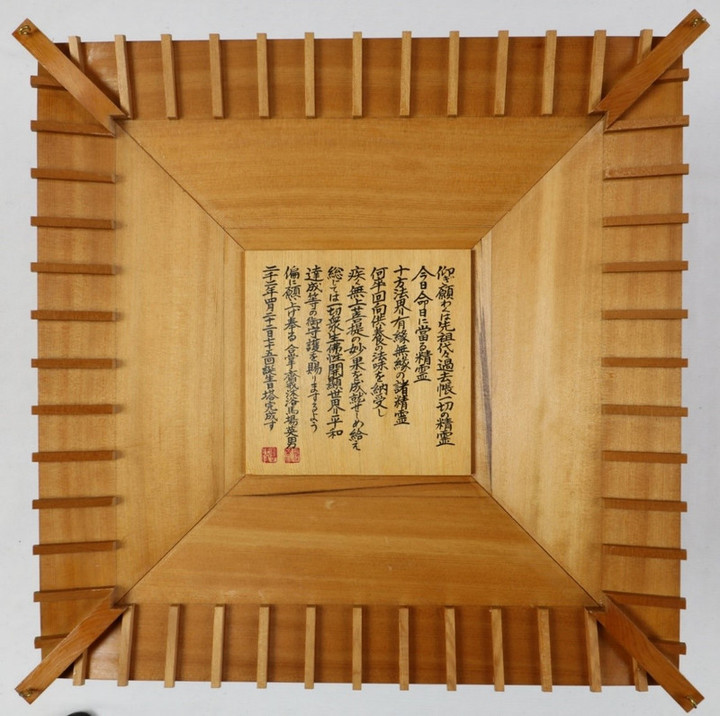 仰ぎ願わくは先祖代々過去帳一切の精霊
今日命日に當る精霊
十方法界有縁無縁の諸精霊
何卒回向供養の法味を納受し
疾く無上菩提の妙果を成就せしめ給え
総じては一切衆生佛性開顯世界平和
達成等の御守護を賜りまするよう
偏に願上げ奉る 合掌 深谷馬場英男
二十二年四月二十二日七十五回誕生日塔完成す